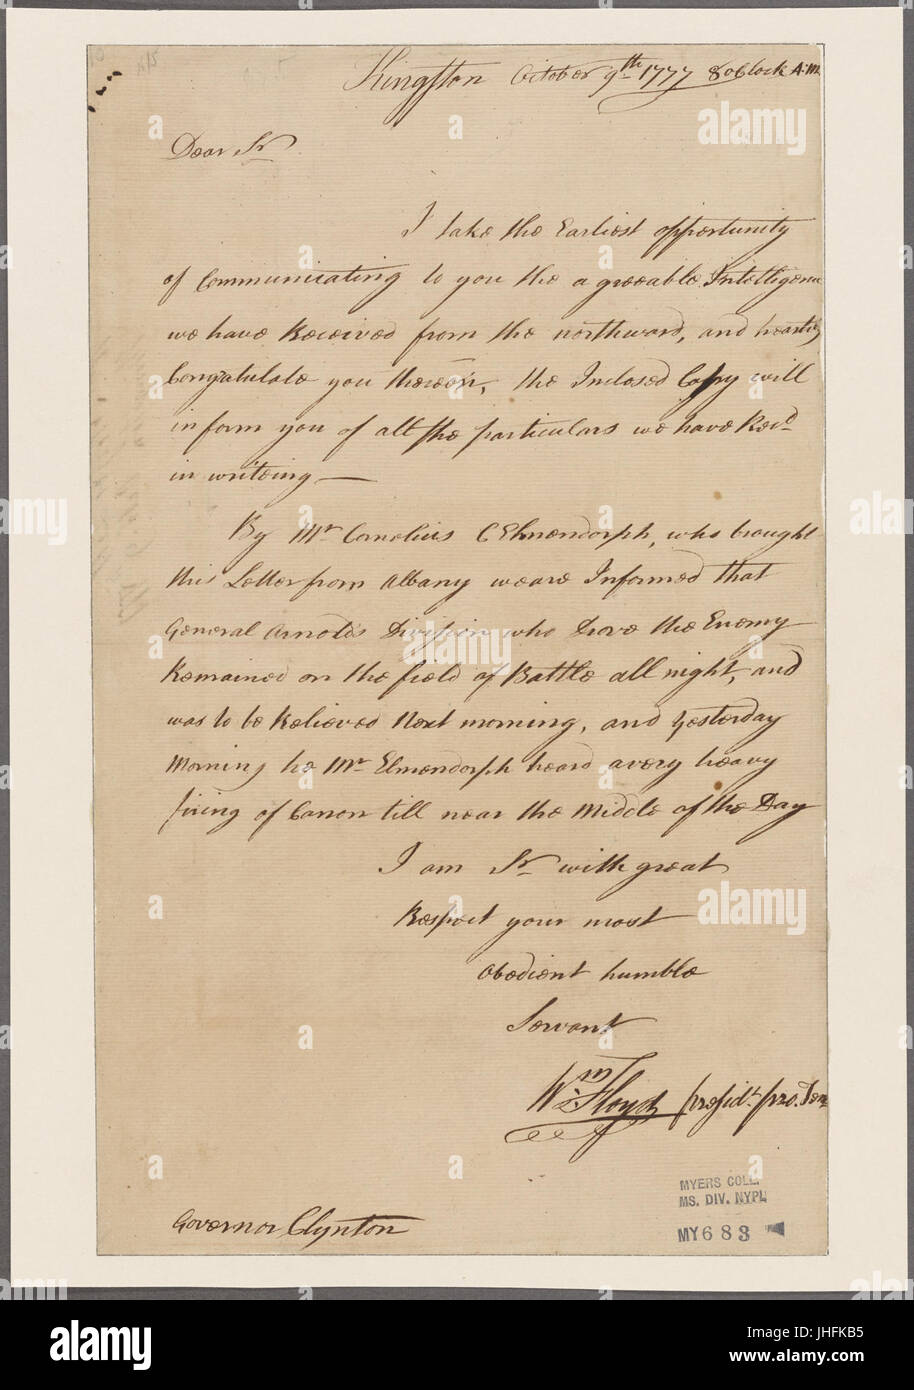 Kingston October 9th 1777 8 oClock A:M
Dear Sr
I take the Earliest opportunity
of Communicating to you the agreeable Intelligence
we have Received from the northward, and heartily
Congratulate you thereon, the Inclosed Copy will
inform you of all the particulars we have Recd
in writeing —
By Mr Cornelius C Elmendorph, who brought
this Letter from Albany we are Informed that
General Arnolds Division who Drove the Enemy
Remained on the field of Battle all night, and
was to be Relieved Next morning, and yesterday
Morning he Mr Elmendorph heard a very heavy
firing of Canon till near the Middle of the Day
I am Sr with great
Respect your most
obedient humble
Servant
Wm Floyd presidt pro. Tem
MYERS COLL.
MS. DIV. NYPL
MY 683
Governor Clynton
alamy
alamy
alamy
alamy
alamy
Image ID: JHFKB5
www.alamy.com